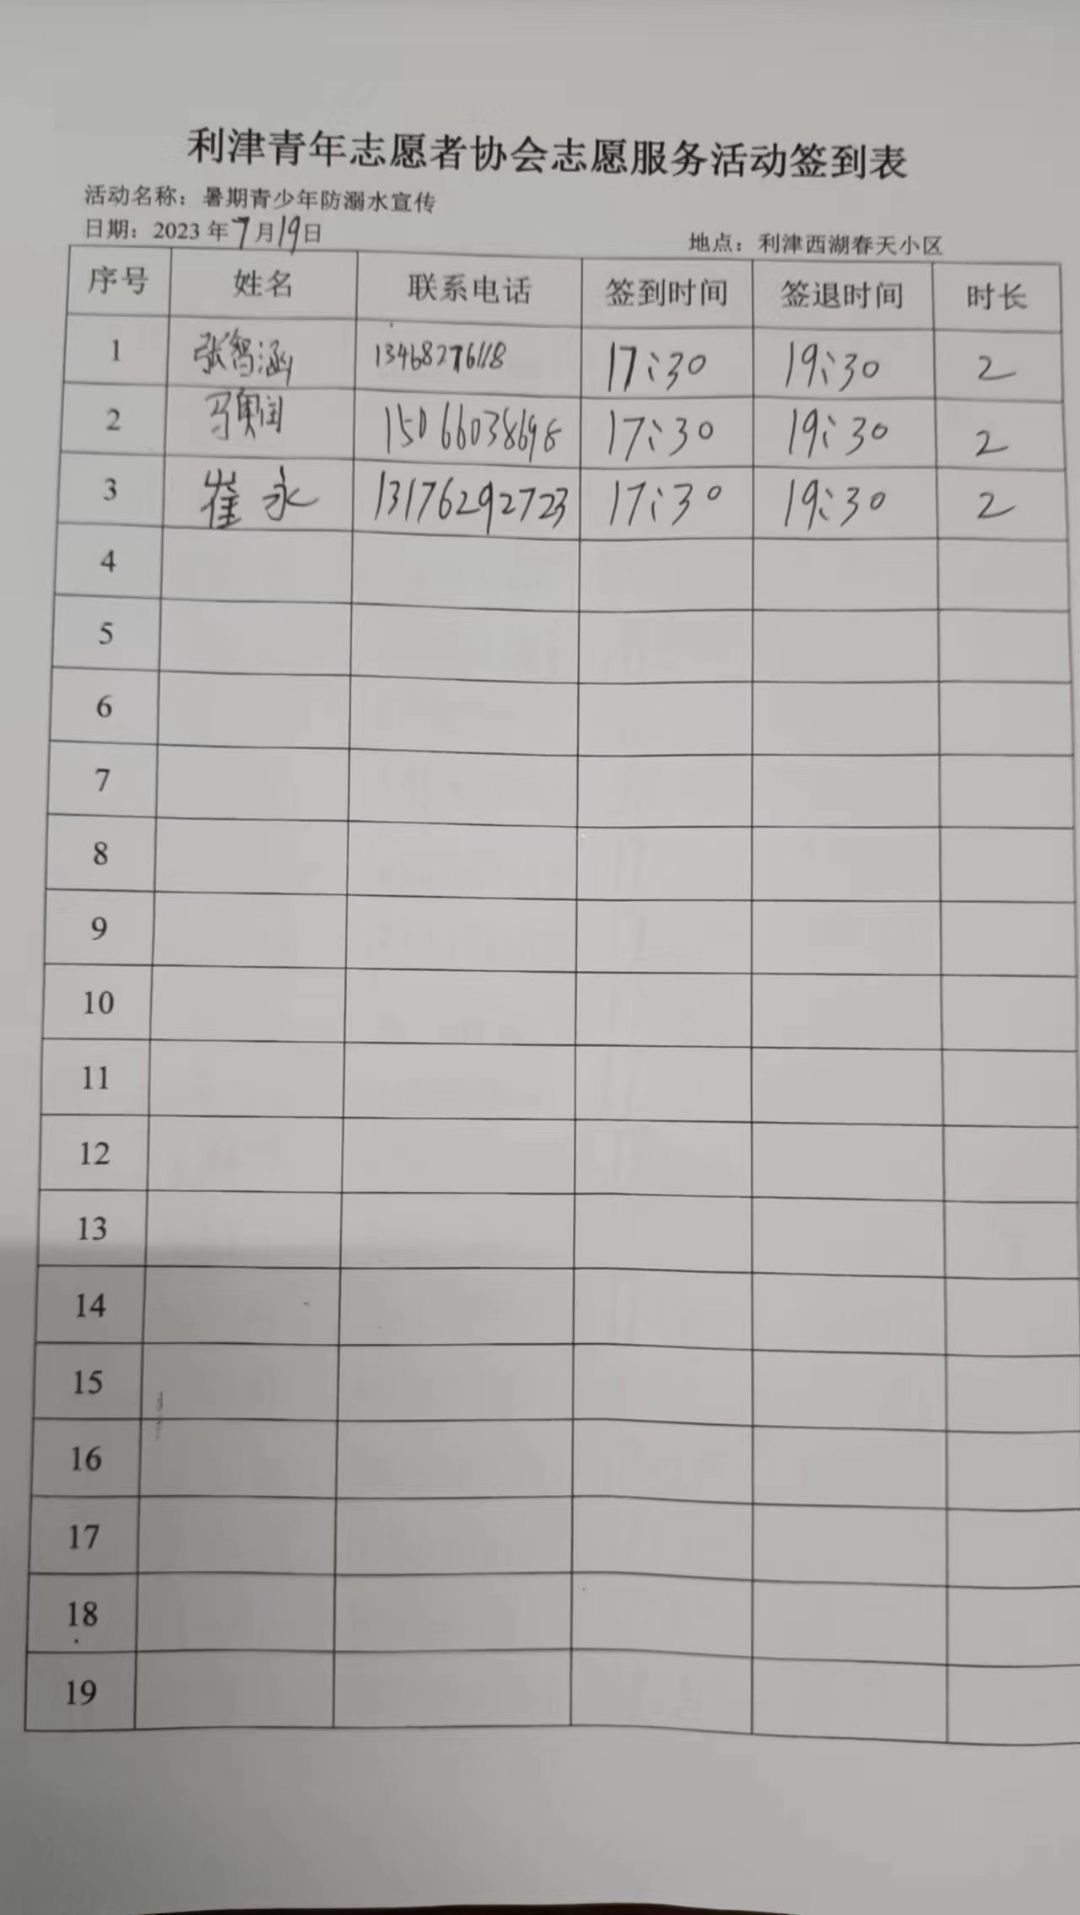 利津青年志愿者协会志愿服务活动签到表
活动名称：暑期青少年防溺水宣传
日期：2023年7月19日 地点：利津西湖春天小区
序号 姓名 联系电话 签到时间 签退时间 时长
1 张智涵 13468276118 17:30 19:30 2
2 马奥闰 15066038698 17:30 19:30 2
3 崔永 13176292723 17:30 19:30 2
4
5
6
7
8
9
10
11
12
13
14
15
16
17
18
19